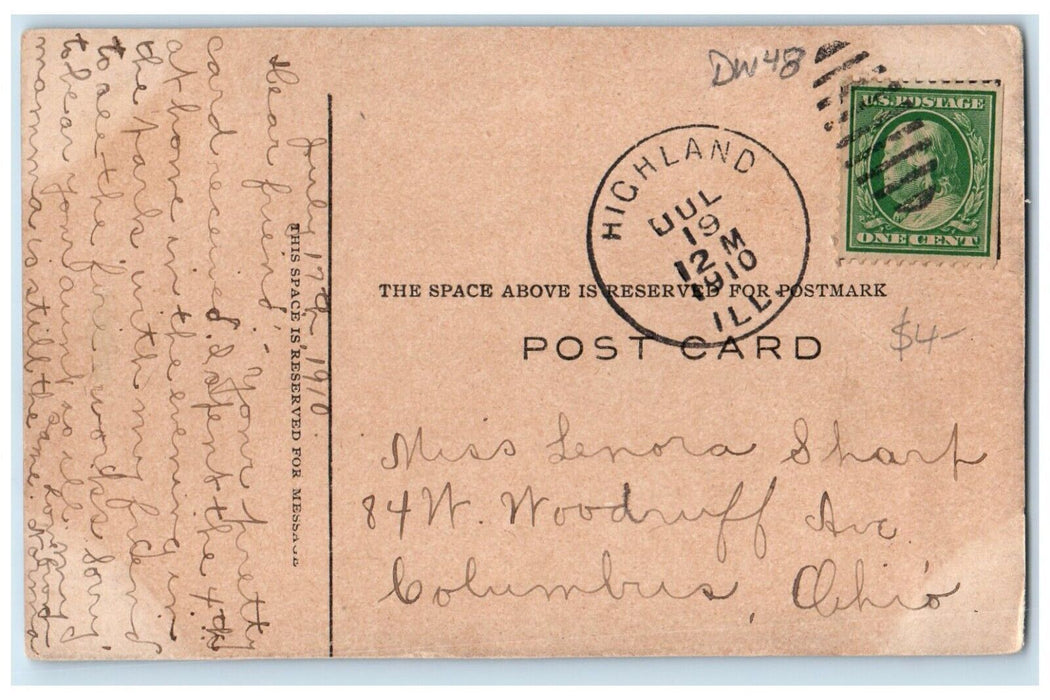 July 17th 1910
Dear friend: Your pretty
card received. I spent the 4th
at home in the evening in
the park with my friend
to see the fire works. Sorry
to hear your aunt so ill. My
mamma is still the same.
THIS SPACE IS RESERVED FOR MESSAGE
DW48
U.S. POSTAGE
ONE CENT
HIGHLAND
JUL
19
12 M
1910
ILL.
THE SPACE ABOVE IS RESERVED FOR POSTMARK
POST CARD
$4-
Miss Lenora Sharp
84 W. Woodruff Ave
Columbus, Ohio